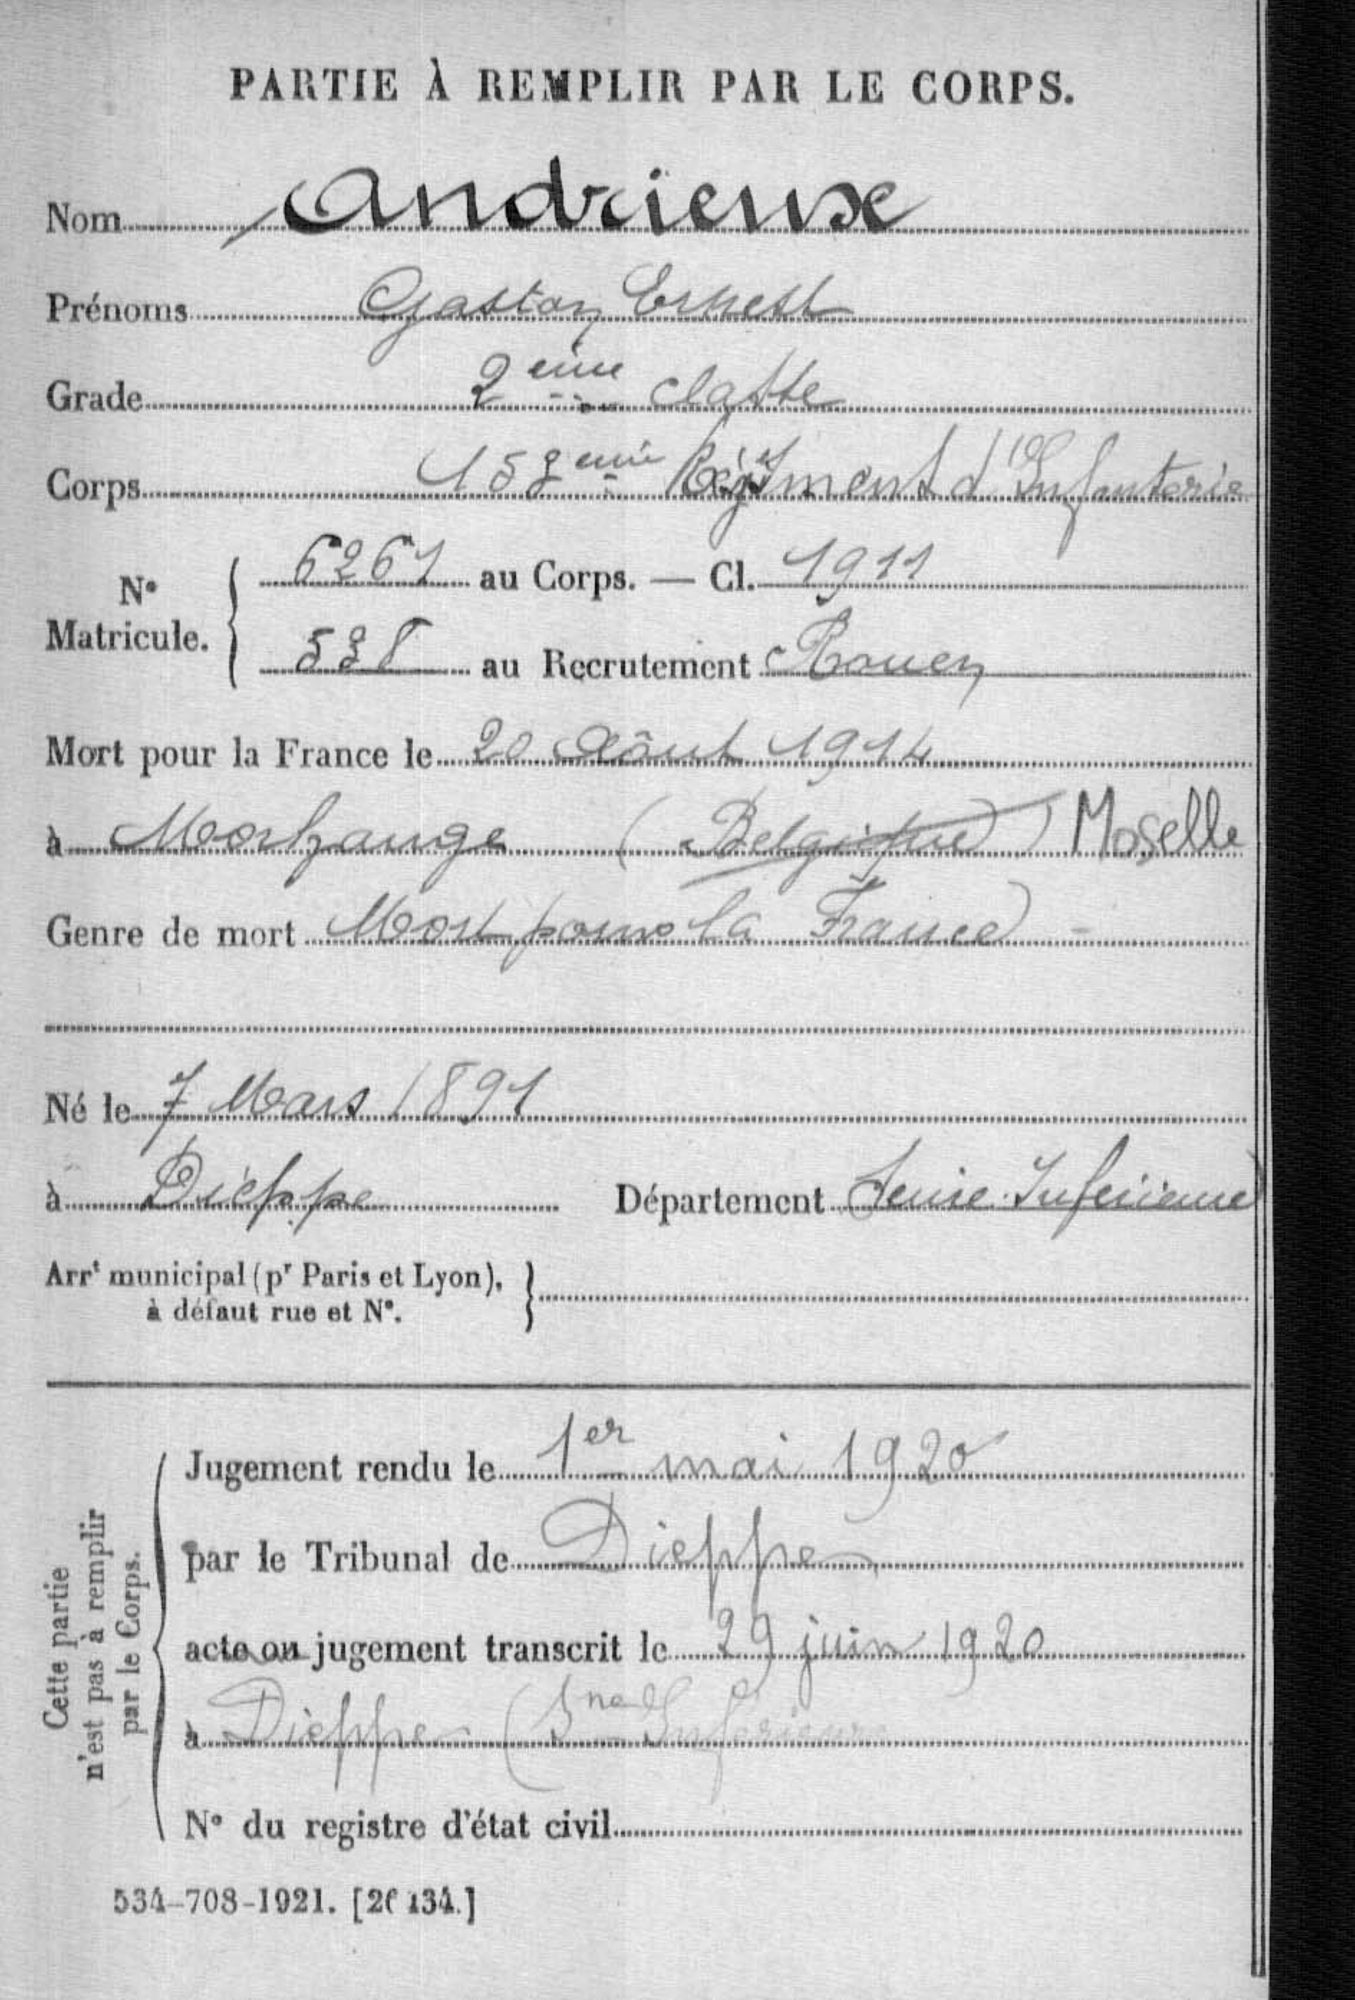 PARTIE À REMPLIR PAR LE CORPS.
Nom Andrieux
Prénoms Gaston Ernest
Grade 2ème classe
Corps Régiment d'Infanterie
N° Matricule. 6261 au Corps. — Cl. 1911
538 au Recrutement Rouen
Mort pour la France le 20 Août 1914
à Morhange (Belgique) Moselle
Genre de mort Mort pour la France
Né le 7 Mars 1891
à Dieppe Département Seine Inférieure
Arrt municipal (pr Paris et Lyon),
à défaut rue et N°.
Cette partie
n'est pas à remplir
par le Corps.
Jugement rendu le 1er mai 1920
par le Tribunal de Dieppe
acte ou jugement transcrit le 29 juin 1920
à Dieppe (Sne Inférieure
N° du registre d'état civil
534-708-1921. [26134.]